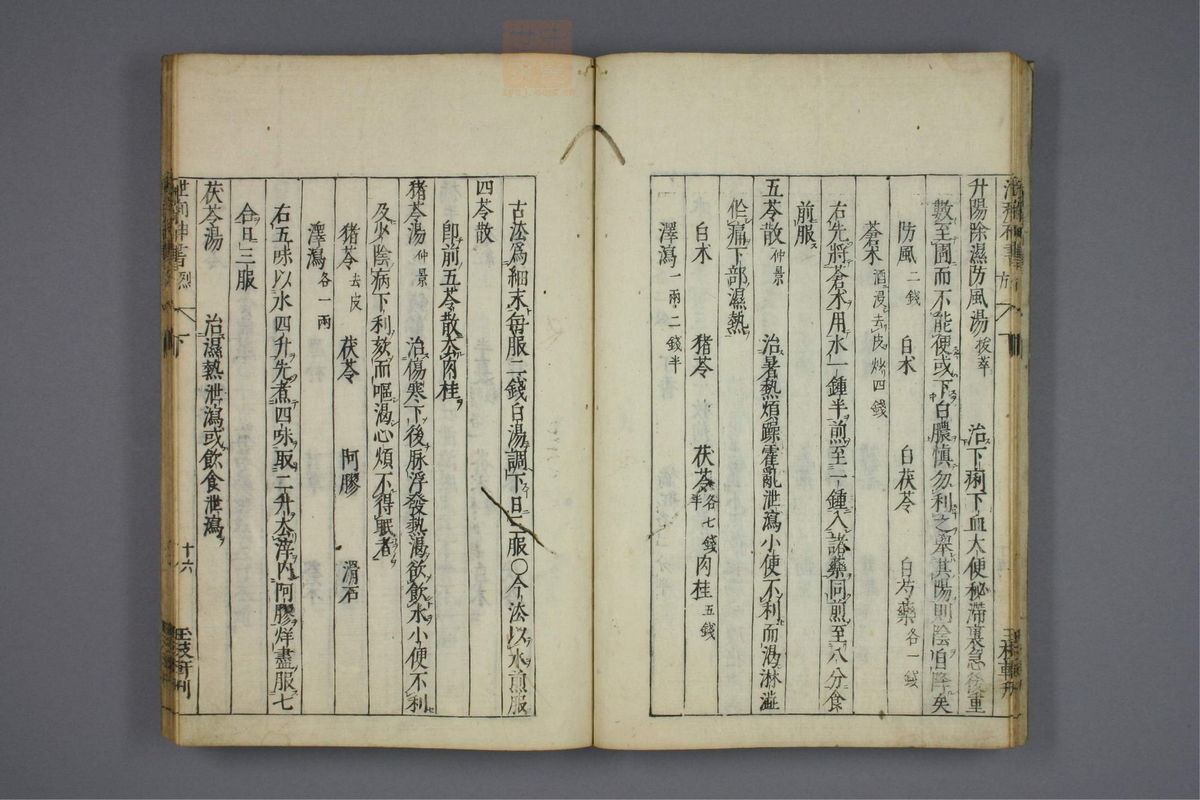 升陽除濕防風湯 拔萃 治下痢下血大便秘滯裏急後重
數至圊而不能便或下白膿愼勿利之擧其陽則陰自降矣
防風 二錢 白朮 白茯苓 白芍藥 各一錢
蒼朮 酒浸去皮炒四錢
右先將蒼朮用水一鍾半煎至一鍾入諸藥同煎至八分食
前服
五苓散 仲景 治暑熱煩躁霍亂泄瀉小便不利而渴淋澁
作痛下部濕熱
白朮 猪苓 茯苓 各七錢半 肉桂 五錢
澤瀉 一兩二錢半
古法爲細末每服二錢白湯調下日三服〇今法以水煎服
四苓散
卽前五苓散去肉桂
猪苓湯 仲景 治傷寒下後脉浮發熱渴欲飲水小便不利
及少陰病下利欬而嘔渴心煩不得眠者
猪苓 去皮 茯苓 阿膠 滑石
澤瀉 各一兩
右五味以水四升先煮四味取二升去滓內阿膠烊盡服七
合日三服
茯苓湯 治濕熱泄瀉或飲食泄瀉
十六